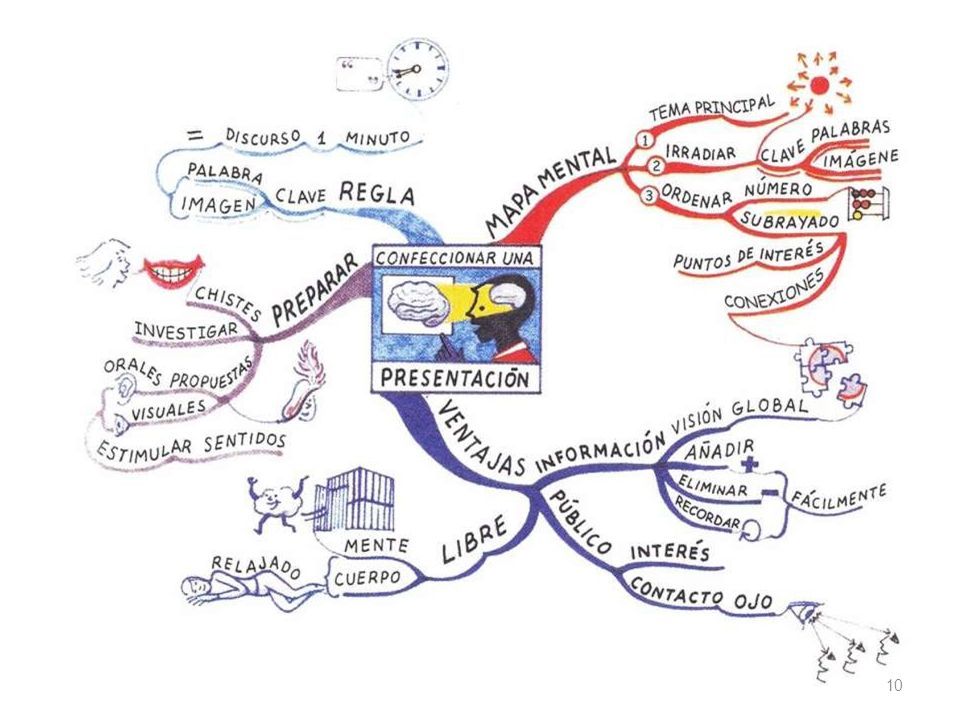 CONFECCIONAR UNA
PRESENTACIÓN
MAPA MENTAL
1
TEMA PRINCIPAL
2
IRRADIAR
CLAVE
PALABRAS
IMÁGENE
3
ORDENAR
NÚMERO
SUBRAYADO
PUNTOS DE INTERÉS
CONEXIONES
VENTAJAS
INFORMACIÓN
VISIÓN GLOBAL
AÑADIR
+
ELIMINAR
-
RECORDAR
FÁCILMENTE
PÚBLICO
INTERÉS
CONTACTO OJO
LIBRE
MENTE
CUERPO
RELAJADO
PREPARAR
CHISTES
INVESTIGAR
PROPUESTAS
ORALES
VISUALES
ESTIMULAR SENTIDOS
REGLA
CLAVE
PALABRA
IMAGEN
= DISCURSO 1 MINUTO
“ ”
10